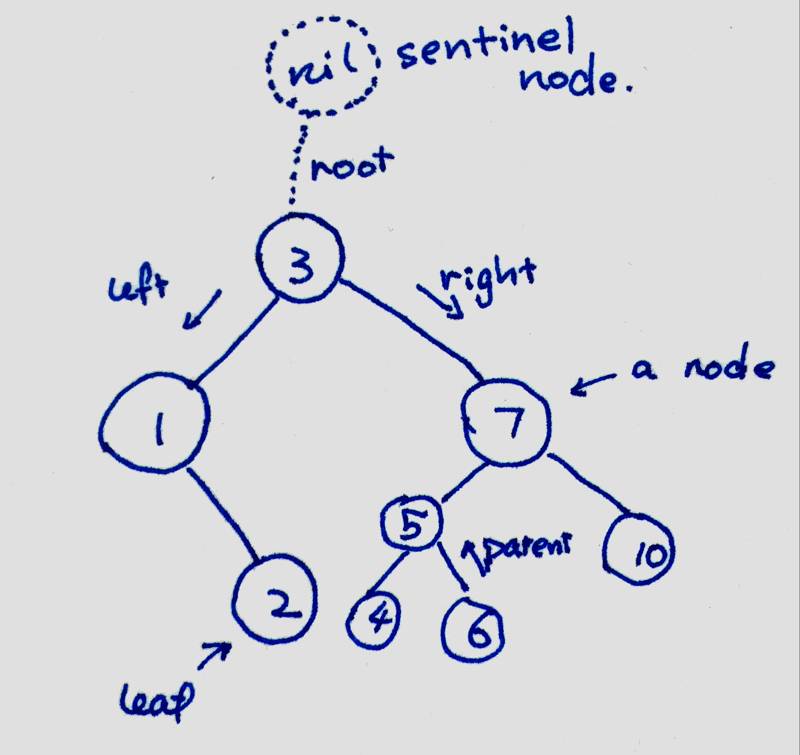 nil
sentinel
node.
root
3
left
right
1
7
a node
5
parent
10
2
4
6
leaf